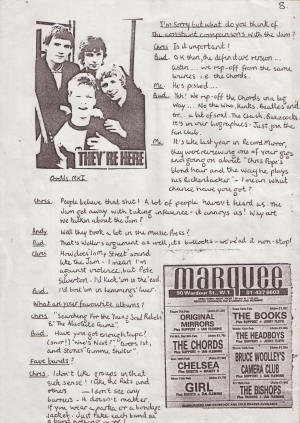 8.
I'm sorry but what do you think of
the constant comparisons with the Jam?
Chris Is it important?
Bud. O.K then, the definitive reason ...
listen .... we rip-off from the same
sources - i.e. the Chords.
Me. He's pissed ....
Bud. Yeh! We rip-off the Chords in a big
way ... No the Who, Kinks, Beatles and
er... a bit of soul. The Clash, Buzzcocks.
It's in our biographies - Just join the
fan club.
Me. It's like last year in Record Mirror,
they were reviewing one of your gigs
and going on about "Chris Pope's
blond hair and the way he plays
his Rickenbacker" - I mean what
chance have you got?
THEY'RE HERE
Chords MKI
Chris. People believe that shit! A lot of people haven't heard us. The
Jam got away with taking influence - it annoys us! Why are
we talking about the Jam?
Andy Well they took a lot in the Music Press?
Bud. That's Weller's argument as well, it's bollocks - we're at it non-stop!
Chris How does In My Street sound
like the Jam - I mean I'm
against violence, but Pete
Silverton - I'd kick 'im in the
Bud. I'd bowl 'im an
What are your favourite albums?
Chris. "Searching For the Young Soul Rebels"
& "The Favourite Game".
Bud. Have you got enough tape!
(snip!) "Who's Next!", "Doors 1st,
and Stones "Gimme Shelter".
Fave bands?
Chris. I don't like groups in that
sense! I like the Nuts and
others - I don't see any
barriers - it doesn't matter
if you wear a parka or a bondage
jacket. Just take each band as
a band nothing more!
marquee
90 Wardour St., W.1.
01-437 6603
ORIGINAL
MIRRORS
THE BOOKS
THE CHORDS
THE HEADBOYS
CHELSEA
BRUCE WOOLLEY'S
CAMERA CLUB
GIRL
THE BISHOPS